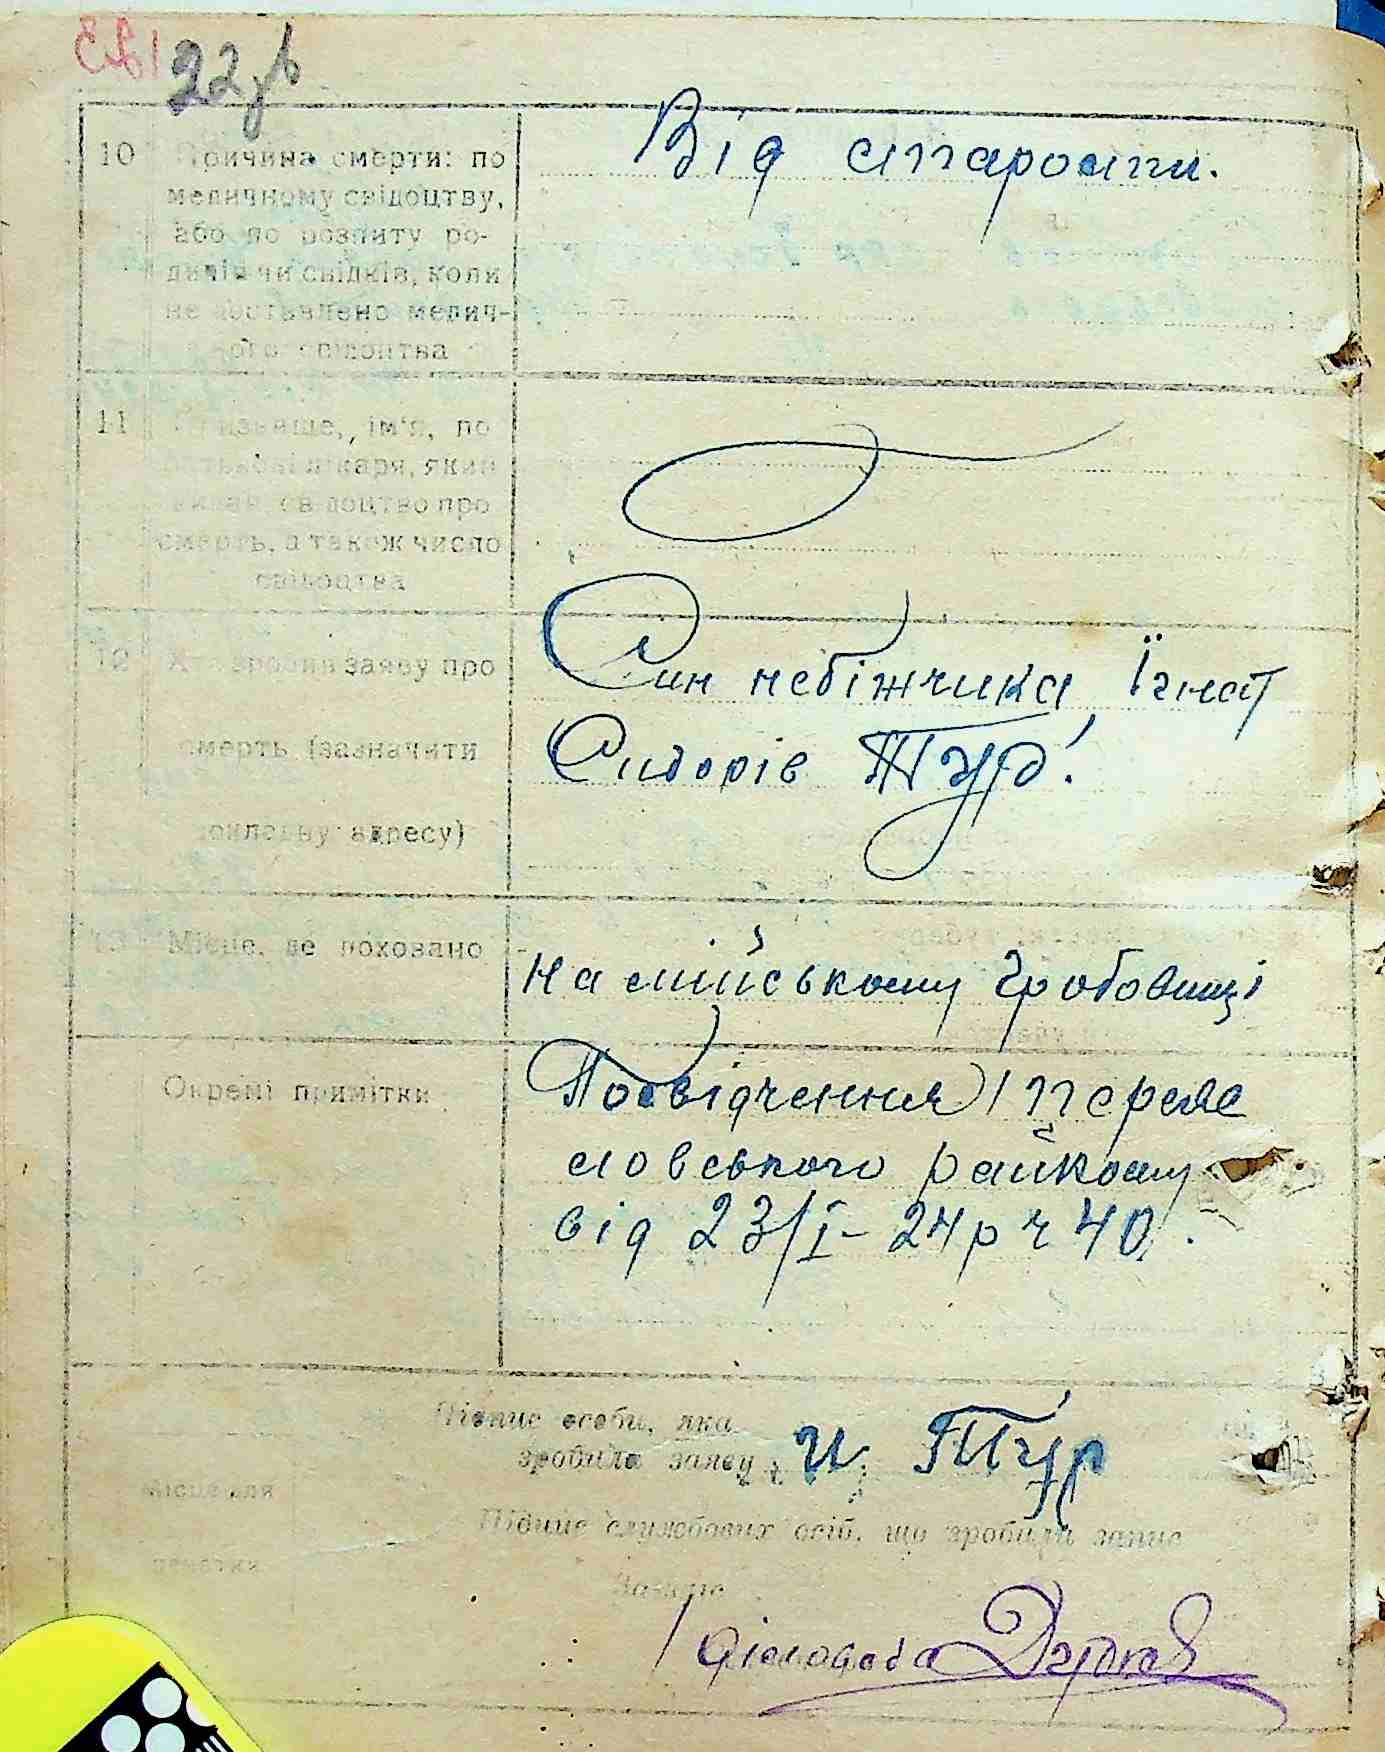 22 зв
10 Причина смерти: по
медичному свідоцтву,
або по розпиту ро-
дичів чи свідків, коли
не поставлено медич-
ного свідоцтва
Від старости.
11 Прізвище, ім'я, по
батькові лікаря, який
видав свідоцтво про
смерть, а також число
свідоцтва
12 Хто зробив заяву про
смерть (зазначити
докладну адресу)
Син небіжчика Ігнат
Сидорів Тур.
13 Місце, де поховано
на мійському гробовищі
Окремі примітки
Посвідчення Переяс
ловського райкому
від 23/I-24р ч 40.
Підпис особи, яка
зробила заяву
И. Тур
Місце для
печатки
Підпис службових осіб, що зробили запис
діловода